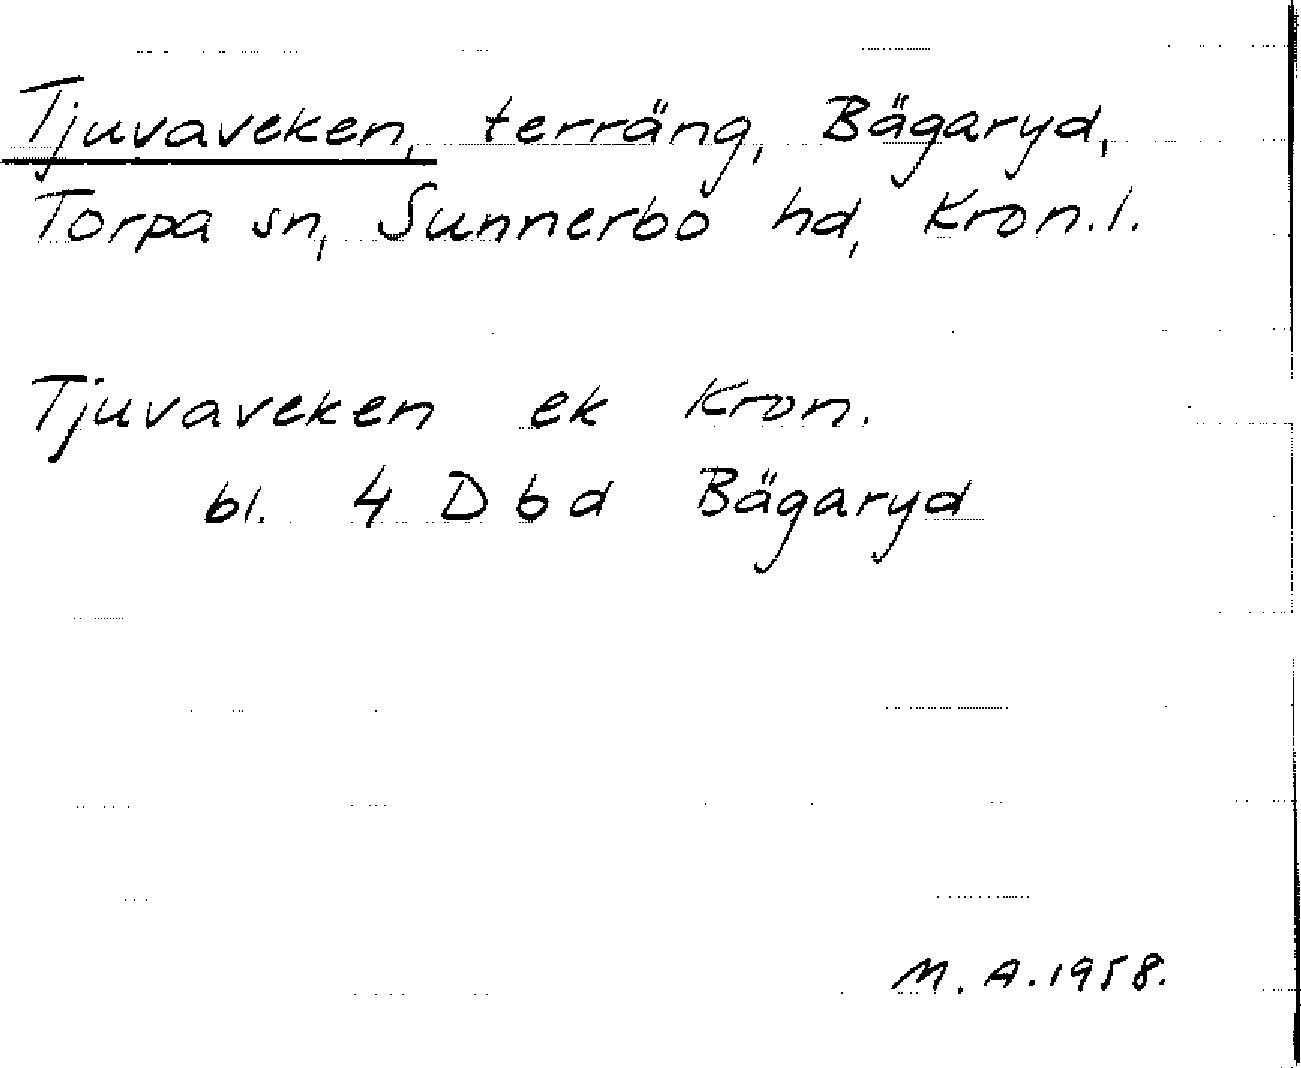 Tjuvaveken, terräng, Bägaryd,
Torpa sn, Sunnerbo hd, Kron.l.
Tjuvaveken ek Kron.
bl. 4 D b d Bägaryd
M.A.1958.